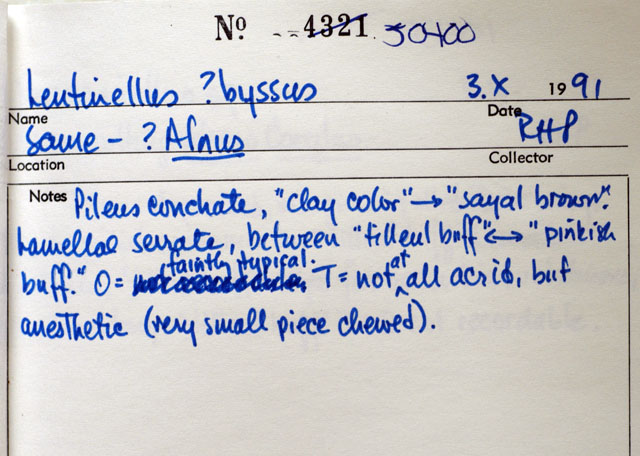 Nº 4321 30400
Lentinellus ?byssus 3.X 1991
Name Date
Same - ? Alnus RHP
Location Collector
Notes Pileus conchate, "clay color" → "sayal brown".
Lamellae serrate, between "tilleul buff" ↔ "pinkish
buff." O = faintly typical. T = not at all acrid, but
anesthetic (very small piece chewed).